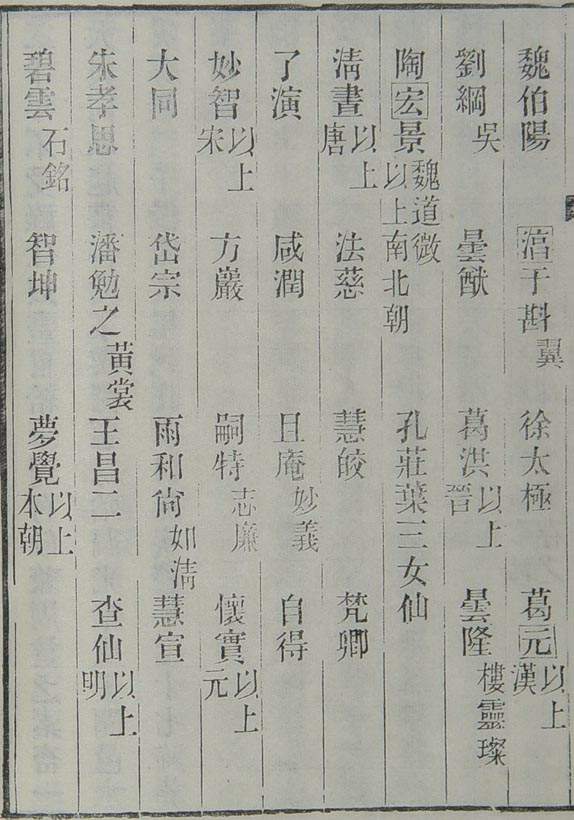 魏伯陽 湻于斟翼 徐太極 葛元以上漢
劉綱吳 曇猷 葛洪以上晉 曇隆樓靈璨
陶宏景魏道微以上南北朝 孔莊葉三女仙
淸晝以上唐 法慈 慧皎 梵卿
了演 咸潤 且庵妙義 自得
妙智以上宋 方巖 嗣特志廉 懷實以上元
大同 岱宗 雨和尙如淸 慧宣
朱孝思 潘勉之黃裳 王昌二 查仙以上明
碧雲石銘 智坤 夢覺以上本朝